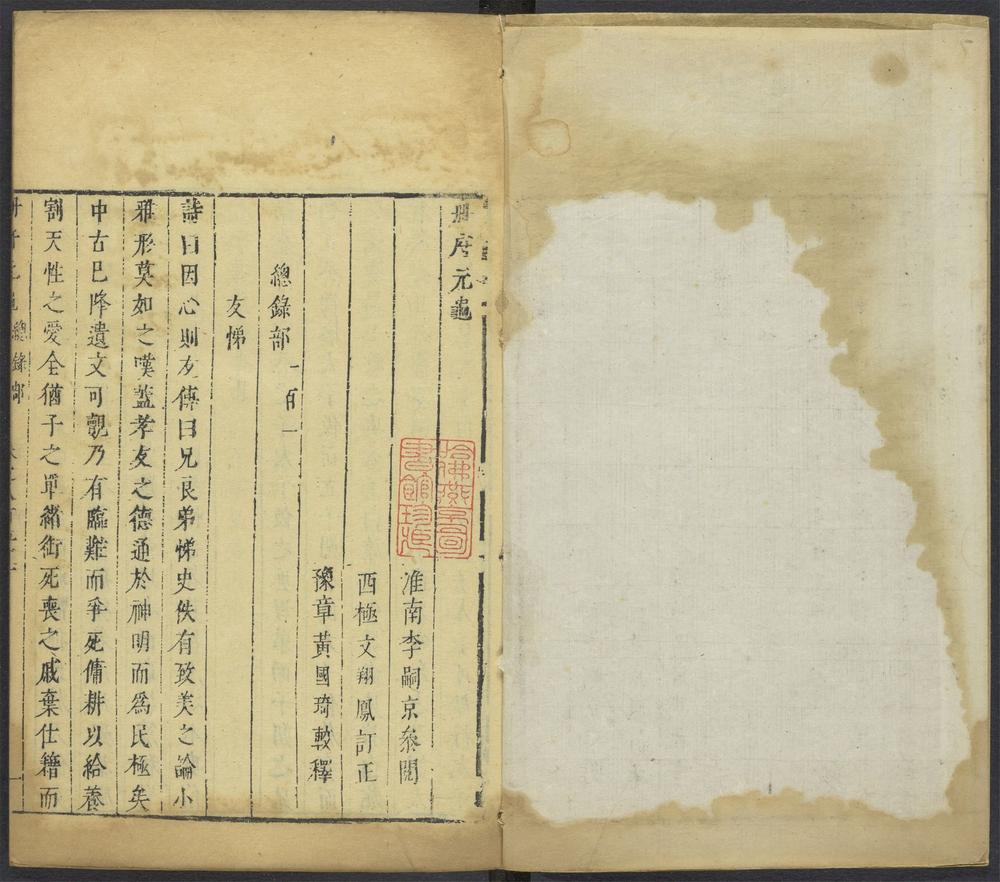 册府元龜
淮南李嗣京叅閱
西極文翔鳳訂正
豫章黃國琦較釋
總錄部 一百一
友悌
詩曰因心則友傳曰兄良弟悌史佚有致美之論小
雅形莫如之嘆蓋孝友之德通於神明而爲民極矣
中古巳降遺文可觀乃有臨難而爭死傭耕以給養
割天性之愛全猶子之單緒銜死喪之戚棄仕籍而
總錄部
哈佛燕京圖
書館珍藏